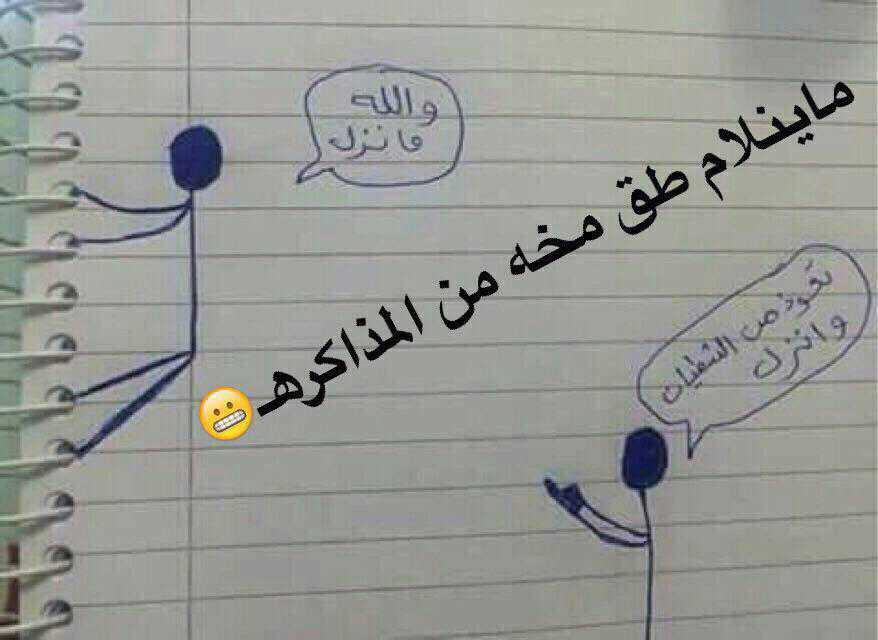 والله
مانزل
ماينلام طق مخه من المذاكرهـ
تعوذ من الشطيان
وانزل